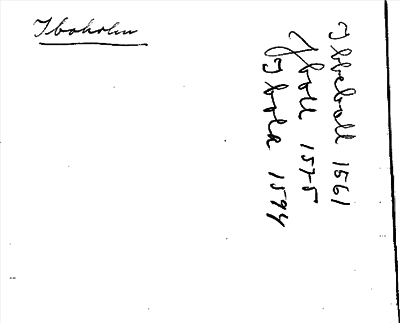 Iboholm
Ibbeboll 1561
Iboll 1575
Ibole 1594